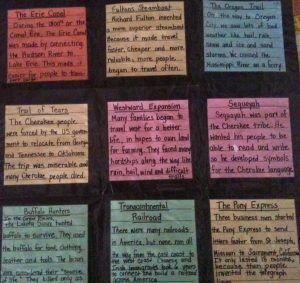 The Erie Canal
During the 1800s on the
Canal Erie. The Erie Canal
was made by connecting
the Hudson River to
Lake Erie. This made it
easier for people to
Fultons Steamboat
Richard Fulton invented
a more superior steamboat
because it made travel
faster, cheaper and more
reliable, more people
began to travel often.
The Oregon Trail
On the way to Oregon
City, we saw lots of bad
weather like hail, rain,
snow and ice and sand
storms. We crossed the
Mississippi River on a ferry.
Trail of Tears
The Cherokee people
were forced by the US govern-
ment to relocate from Georgia
and Tennessee to Oklahoma.
The trip was miserable and
many Cherokee people died.
Westward Expansion
Many families began to
travel west for a better
life, in hopes to own land
for farming. They faced many
hardships along the way like
rain, hail, wind and difficult
trails.
Sequoyah
Sequoyah was part of
the Cherokee tribe. He
wanted his people to be
able to read and write
so he developed symbols
for the Cherokee language.
Buffalo Hunters
In the Great Plains,
the Lakota Sioux hunted
buffalo to survive. They used
the buffalo for food, clothing,
leather and tools. The bison
were considered their "source
of life". They killed only as
Transcontinental
Railroad
There were many railroads
in America, but none ran all
the way from the east coast to
the west coast. Chinese and
Irish immigrants took 6 years
to connect and build a railroad
across America.
The Pony Express
Three business men started
the Pony Express to send
letters faster from St. Joseph,
Missouri to Sacramento, California.
It only lasted 18 months,
because then people
invented the telegraph.